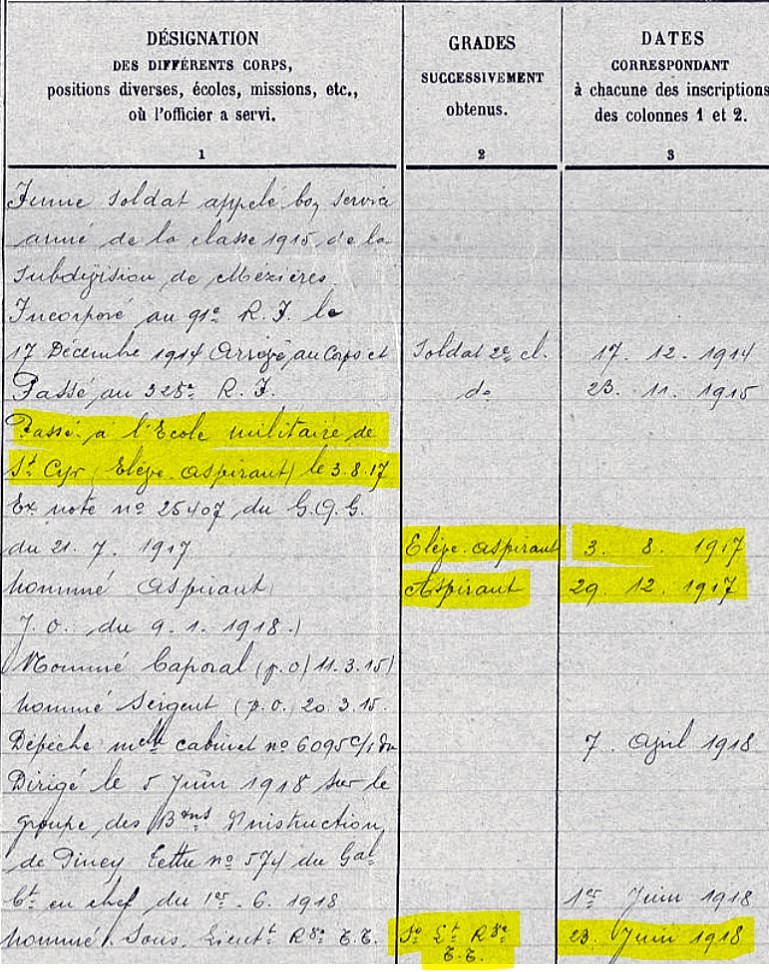 DÉSIGNATION
DES DIFFÉRENTS CORPS,
positions diverses, écoles, missions, etc.,
où l'officier a servi.
1
GRADES
SUCCESSIVEMENT
obtenus.
2
DATES
CORRESPONDANT
à chacune des inscriptions
des colonnes 1 et 2.
3
Jeune soldat appelé bon service
armé de la classe 1915 de la
Subdivision de Mézières
Incorporé au 91e R. I. le
17 Décembre 1914 Arrivé au Corps et Soldat 2e cl. 17. 12. 1914
Passé au 325e R. I. do 23. 11. 1915
Passé à l'Ecole militaire de
St Cyr (Elève aspirant) le 3.8.17
Ex note no 25407 du G.Q.G.
du 21. 7. 1917 Elève aspirant 3. 8. 1917
nommé Aspirant Aspirant 29. 12. 1917
J. O. du 9. 1. 1918.)
Nommé Caporal (p.o) 11.3.15)
nommé Sergent (p.o. 20.3.15.
Dépêche melle cabinet no 6095 du 7 April 1918
Dirigé le 5 Juin 1918 sur le
groupe des Bons d'instruction
de Piney Lettre no 574 du Gal
Ct en chef du 1er. 6. 1918 1er Juin 1918
nommé Sous. Lieutt Rve T.T. So Lt Rve 23 Juin 1918
T.T.